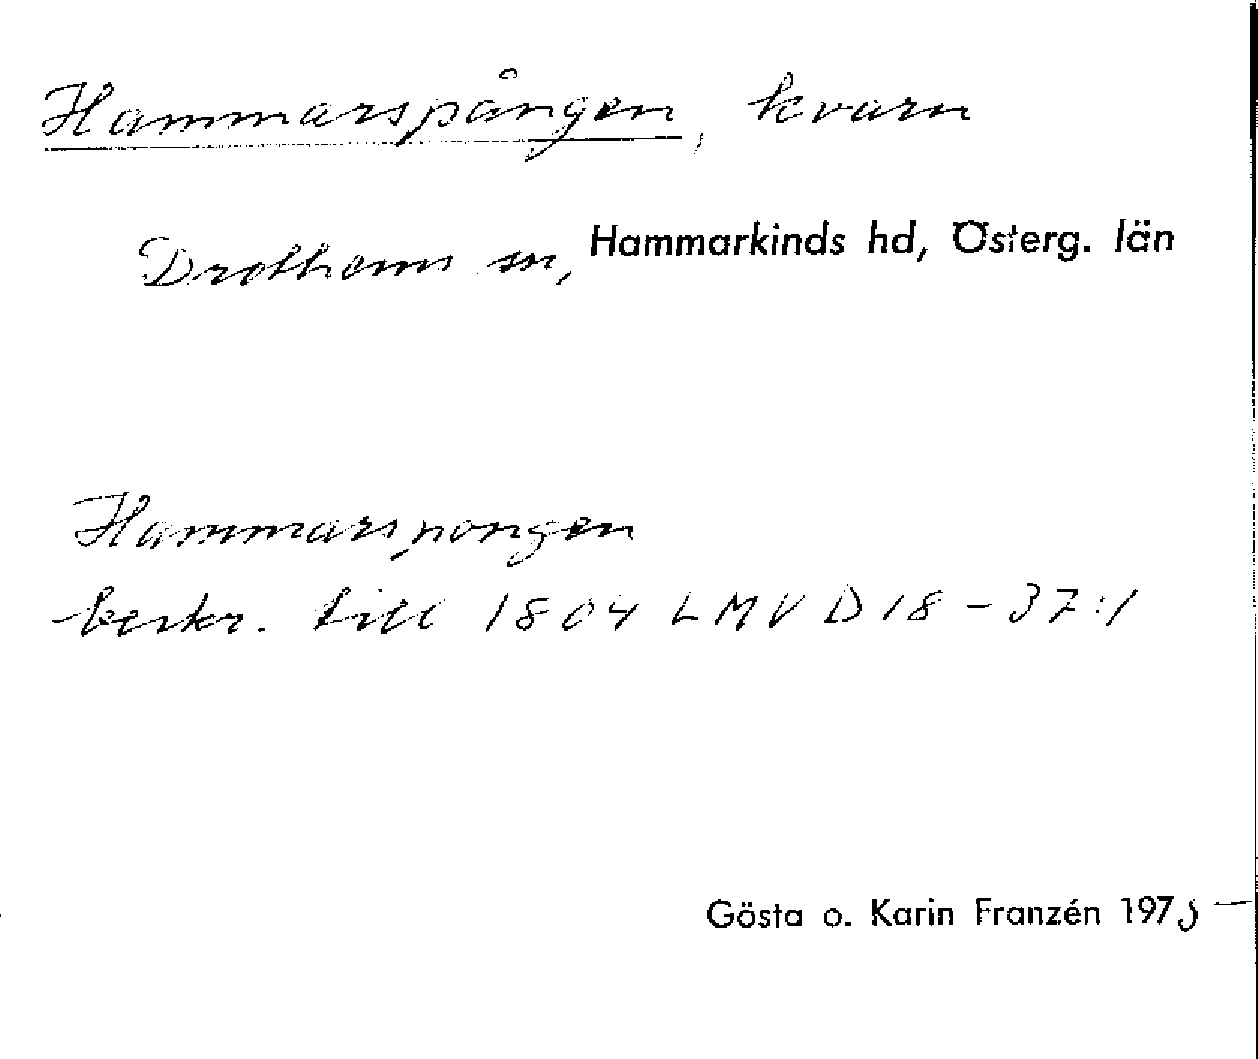 Hammarspången, kvarn
Drothems sn, Hammarkinds hd, Österg. län
Hammarspongen
beskr. till 1804 LMV D18-37:1
Gösta o. Karin Franzén 1975